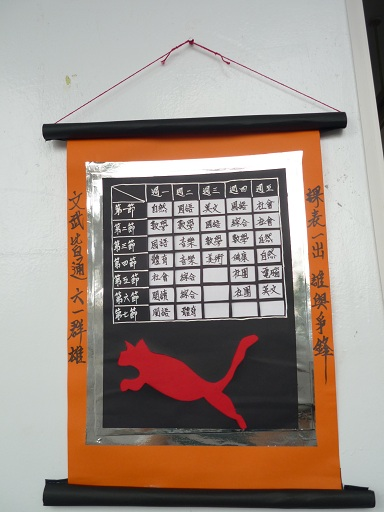 課表一出 誰與爭鋒
週一 週二 週三 週四 週五
第一節 自然 國語 英文 國語 社會
第二節 數學 數學 國語 綜合 社會
第三節 國語 音樂 數學 數學 自然
第四節 體育 音樂 美術 健康 自然
第五節 社會 綜合 社團 電腦
第六節 閱讀 綜合 社團 英文
第七節 國語 體育
文武皆通 六一群雄